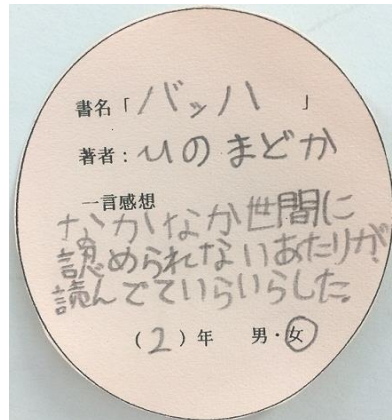 書名「バッハ」
著者：ひのまどか
一言感想
なかなか世間に
認められないあたりが、
読んでていらいらした。
（2）年　男・女